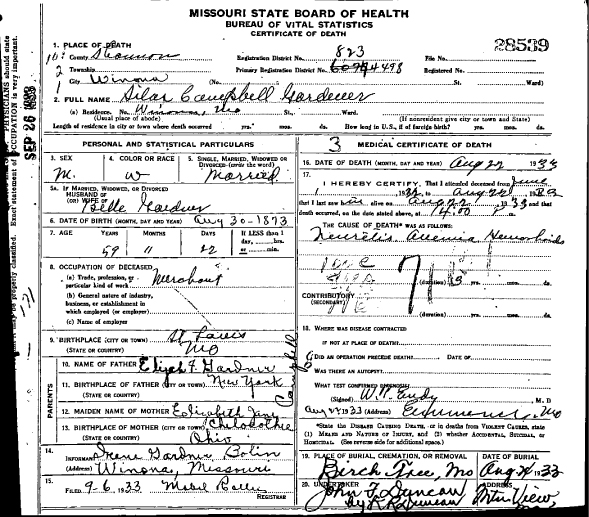 MISSOURI STATE BOARD OF HEALTH
BUREAU OF VITAL STATISTICS
CERTIFICATE OF DEATH
28539
1. PLACE OF DEATH
County Shannon Registration District No. 823 File No.
Township Primary Registration District No. 4498 Registered No.
City Winona (No. St. Ward)
2. FULL NAME Silas Campbell Gardener
(a) Residence. No. Winona, Mo St. Ward.
(Usual place of abode) (If nonresident give city or town and State)
Length of residence in city or town where death occurred yrs. mos. ds. How long in U.S., if of foreign birth? yrs. mos. ds.
PERSONAL AND STATISTICAL PARTICULARS
3. SEX 4. COLOR OR RACE 5. SINGLE, MARRIED, WIDOWED OR DIVORCED (write the word)
M. W Married
5A. IF MARRIED, WIDOWED, OR DIVORCED
HUSBAND OF
(OR) WIFE OF Belle Gardner
6. DATE OF BIRTH (MONTH, DAY AND YEAR) Aug 30-1873
7. AGE YEARS MONTHS DAYS If LESS than 1 day, hrs. or min.
59 11 22
8. OCCUPATION OF DECEASED
(a) Trade, profession, or particular kind of work Merchant
(b) General nature of industry, business, or establishment in which employed (or employer)
(c) Name of employer
9. BIRTHPLACE (CITY OR TOWN) St Louis
(STATE OR COUNTRY) Mo
PARENTS
10. NAME OF FATHER Elijah F. Gardner
11. BIRTHPLACE OF FATHER (CITY OR TOWN) New York
(STATE OR COUNTRY)
12. MAIDEN NAME OF MOTHER Elizabeth Jane Campbell
13. BIRTHPLACE OF MOTHER (CITY OR TOWN) Chilobothie
(STATE OR COUNTRY) Ohio
14. INFORMANT Irene Gardner Bolin
(Address) Winona, Missouri
15. FILED 9-6, 1933 Mabel REGISTRAR
3 MEDICAL CERTIFICATE OF DEATH
16. DATE OF DEATH (MONTH, DAY AND YEAR) Aug 22 1933
17. I HEREBY CERTIFY, That I attended deceased from June
1, 19 to Aug 22, 1933
that I last saw alive on Aug 22, 1933 and that
death occurred, on the date stated above, at m.
THE CAUSE OF DEATH* WAS AS FOLLOWS:
Anemia Hemorrhoids
(duration) yrs. mos. ds.
CONTRIBUTORY
(SECONDARY)
(duration) yrs. mos. ds.
18. WHERE WAS DISEASE CONTRACTED
IF NOT AT PLACE OF DEATH?
DID AN OPERATION PRECEDE DEATH? DATE OF
WAS THERE AN AUTOPSY?
WHAT TEST CONFIRMED DIAGNOSIS?
(Signed) W.T. Eudy, M. D
Aug 22 1933 (Address) Eminence, Mo
*State the DISEASE CAUSING DEATH, or in deaths from VIOLENT CAUSES, state (1) MEANS AND NATURE OF INJURY, and (2) whether ACCIDENTAL, SUICIDAL, or HOMICIDAL. (See reverse side for additional space.)
19. PLACE OF BURIAL, CREMATION, OR REMOVAL DATE OF BURIAL
Birch Tree, Mo Aug 24 1933
20. UNDERTAKER ADDRESS
John F. Duncan Mtn View,
by R R Duncan Mo
SEP 26 1933